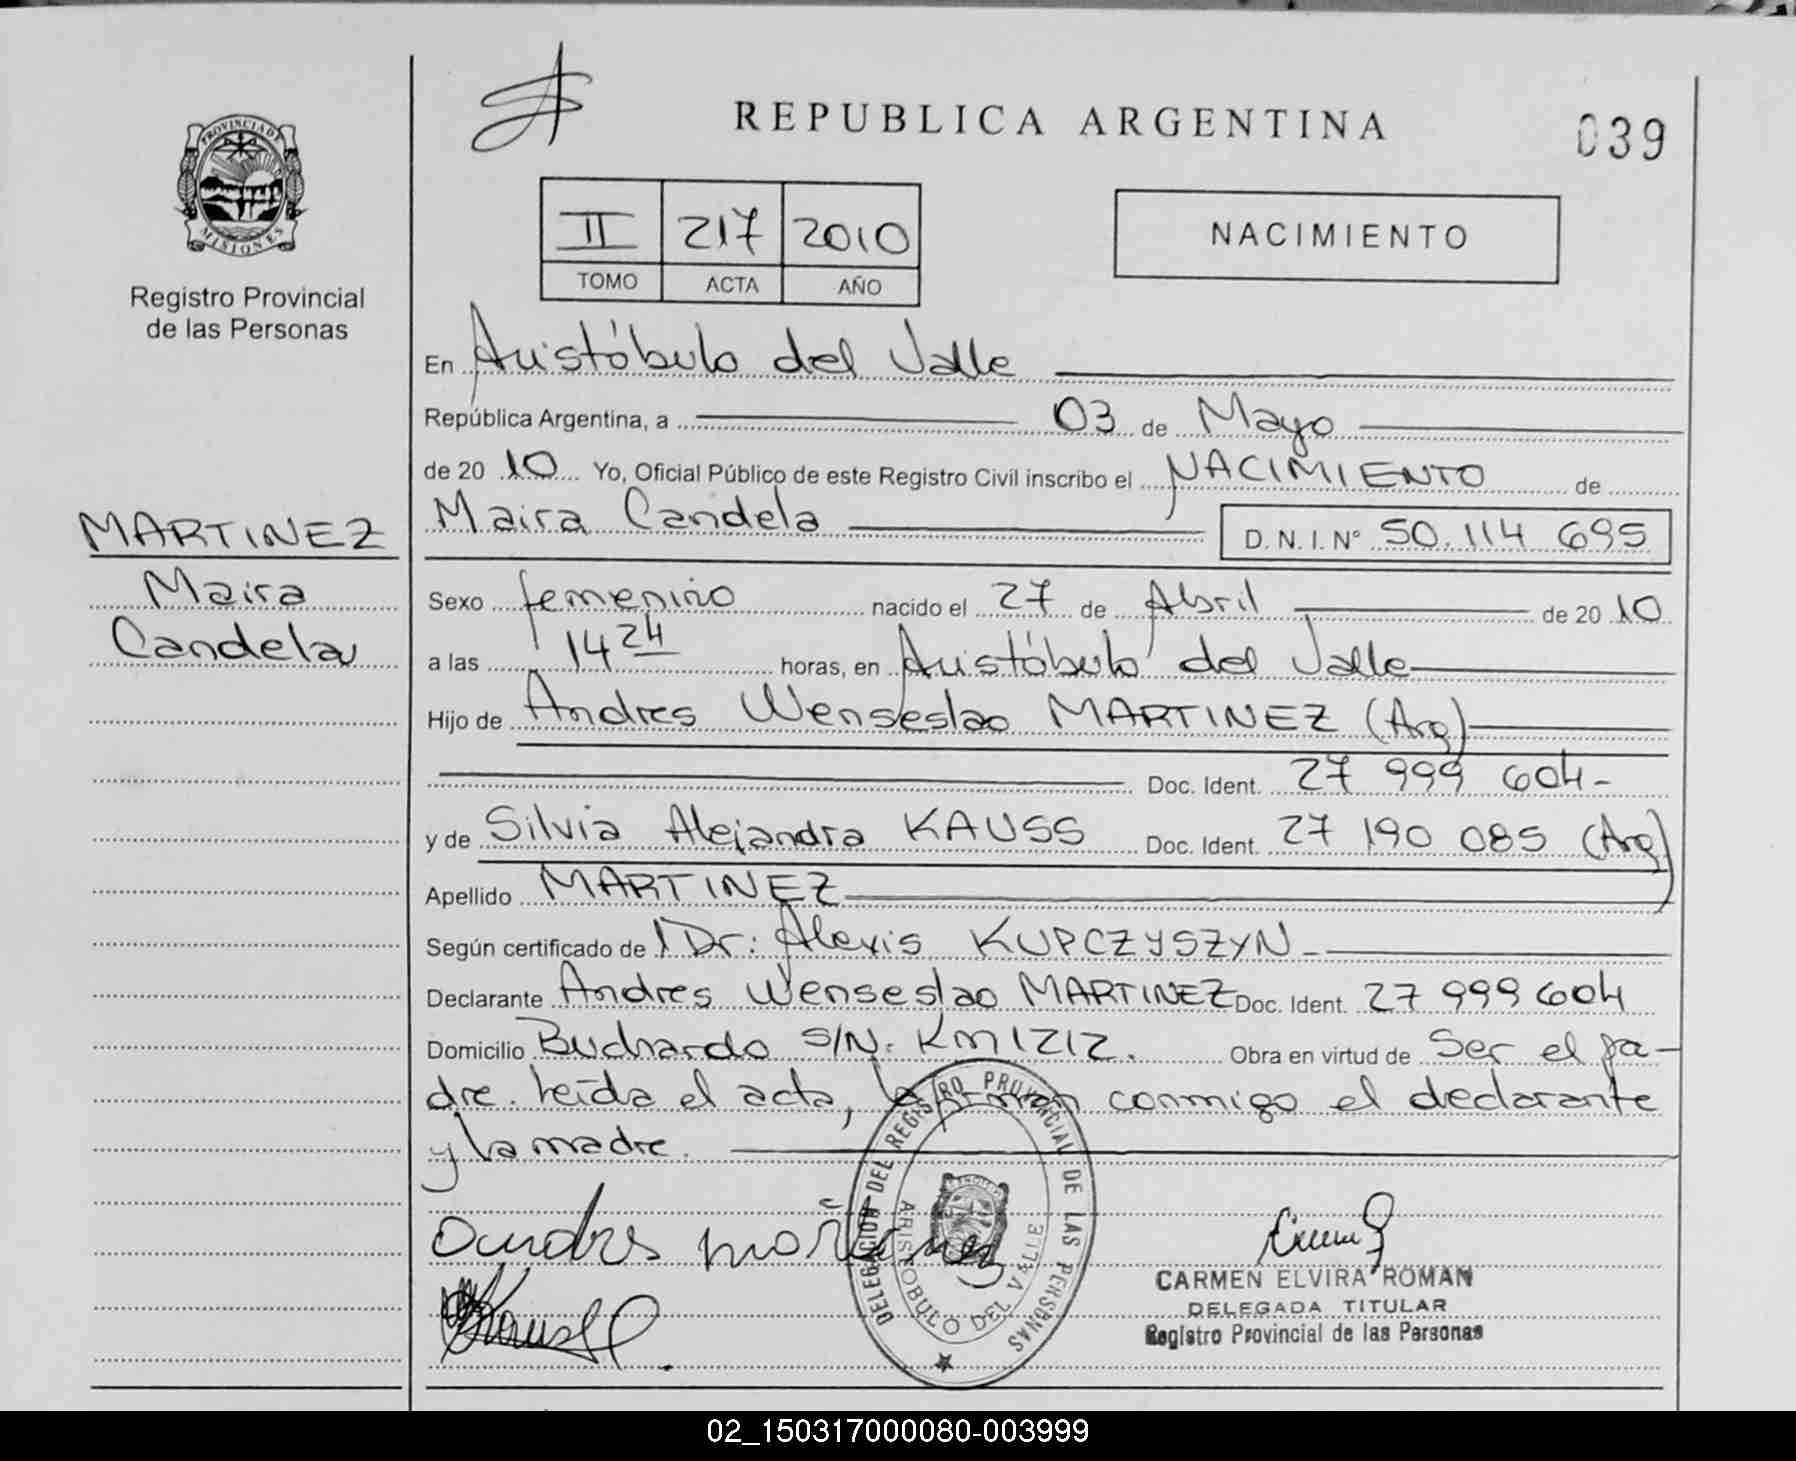 REPUBLICA ARGENTINA
039
PROVINCIA D MISIONES
Registro Provincial
de las Personas
II 217 2010
TOMO ACTA AÑO
NACIMIENTO
En Aristóbulo del Valle
República Argentina, a 03 de Mayo
de 20 10 Yo, Oficial Público de este Registro Civil inscribo el NACIMIENTO de
Maira Candela D.N.I.N° 50.114 695
MARTINEZ
Maira
Candela
Sexo femenino nacido el 27 de Abril de 20 10
a las 14 24 horas, en Aristóbulo del Valle
Hijo de Andres Wenseslao MARTINEZ (Arg)
Doc. Ident. 27 999 604-
y de Silvia Alejandra KAUSS Doc. Ident. 27 190 085 (Arg)
Apellido MARTINEZ
Según certificado de Dr: Alexis KUPCZYSZYN
Declarante Andres Wenseslao MARTINEZ Doc. Ident. 27 999 604
Domicilio Buchardo S/N. Km 1212. Obra en virtud de Ser el pa-
dre. Leída el acta, la firman conmigo el declarante
y la madre.
DELEGACION DEL REGISTRO PROVINCIAL DE LAS PERSONAS
ARISTOBULO DEL VALLE
CARMEN ELVIRA ROMAN
DELEGADA TITULAR
Registro Provincial de las Personas
02_150317000080-003999